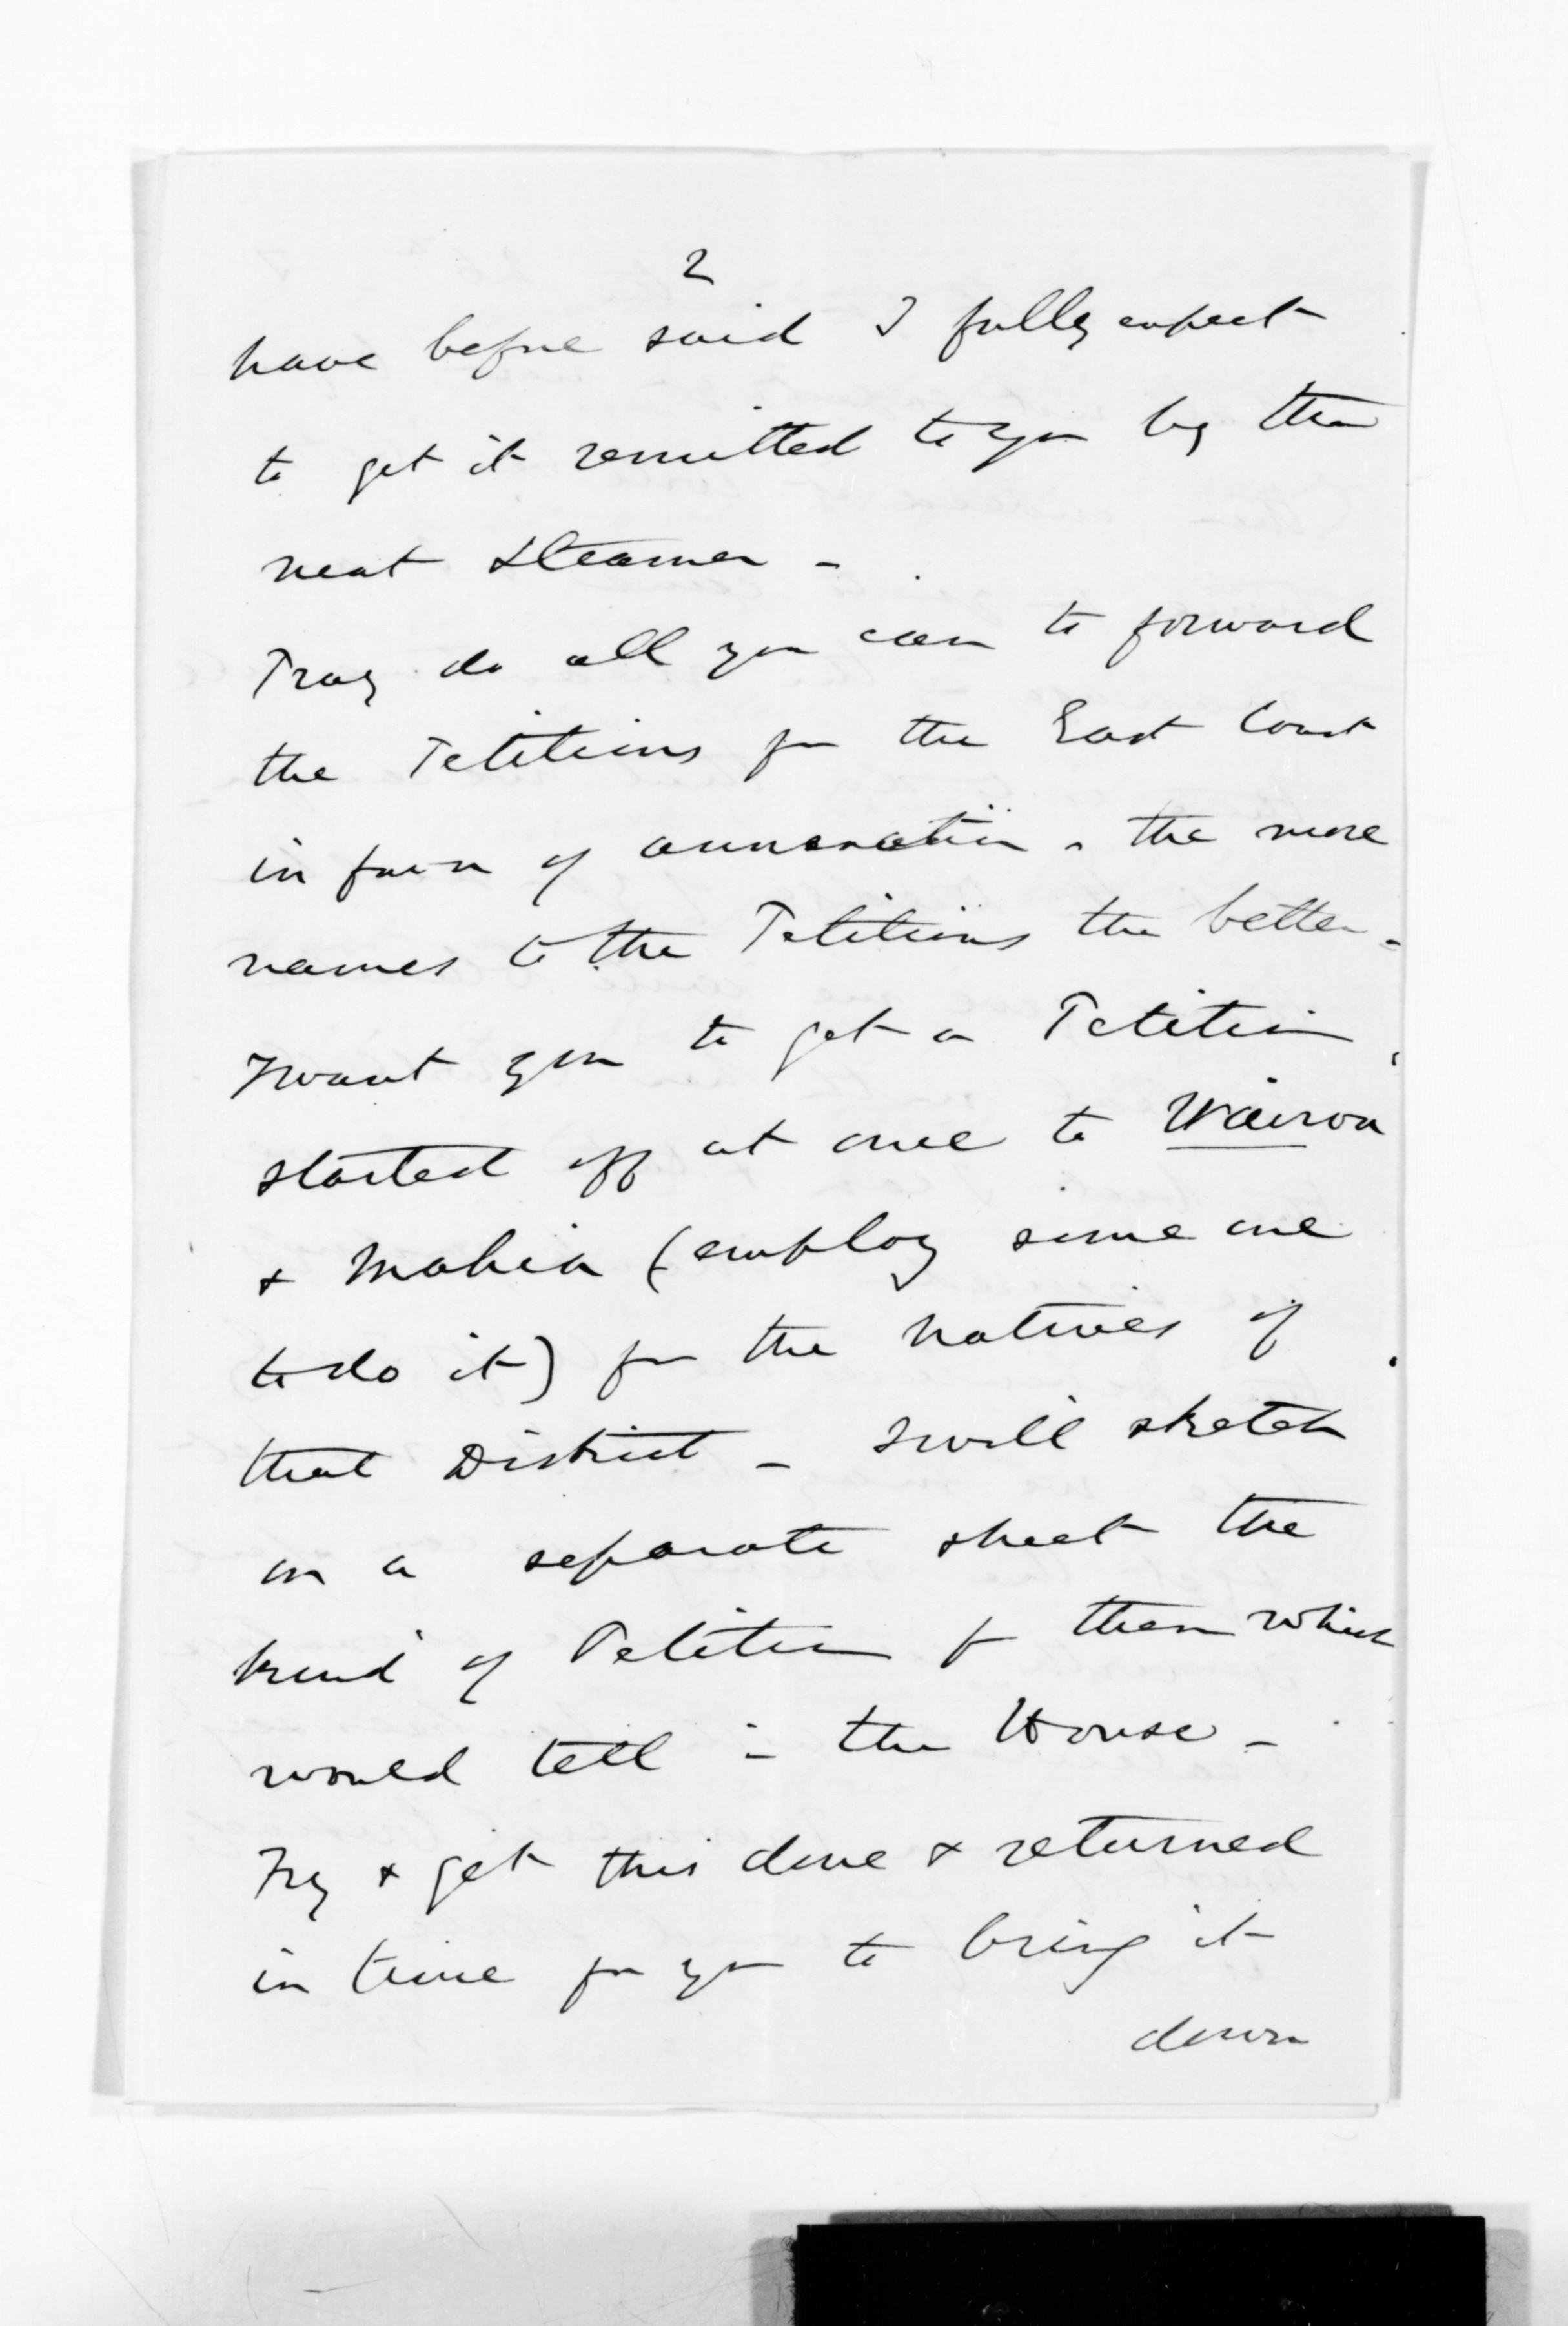 2
have before said I fully expect
to get it remitted to you by the
next steamer -
Pray do all you can to forward
the Petitions for the East Coast
in favor of annexation - the more
names to the Petitions the better -
I want you to get a Petition
started off at once to Wairoa
& Mahia (employ some one
to do it) for the natives of
that District - I will sketch
on a separate sheet the
kind of Petition for them which
would tell in the House -
Try & get this done & returned
in time for you to bring it
down